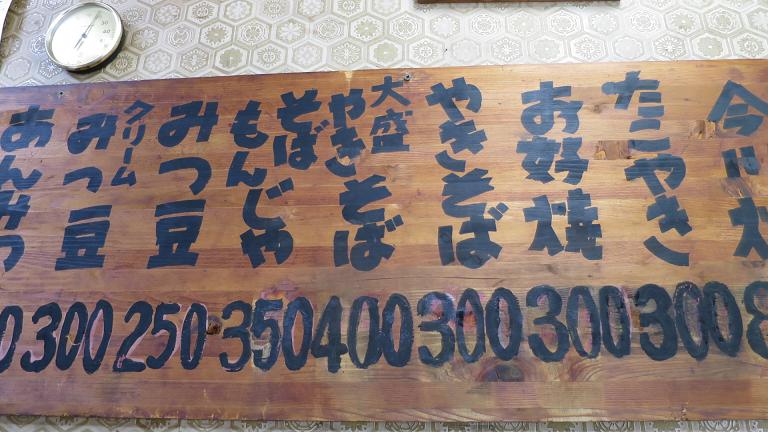 今
8
たこやき
300
お好焼
300
やきそば
300
大盛
やきそば
400
そば
もんじゃ
350
みつ豆
250
クリーム
みつ豆
300
あんみつ
0